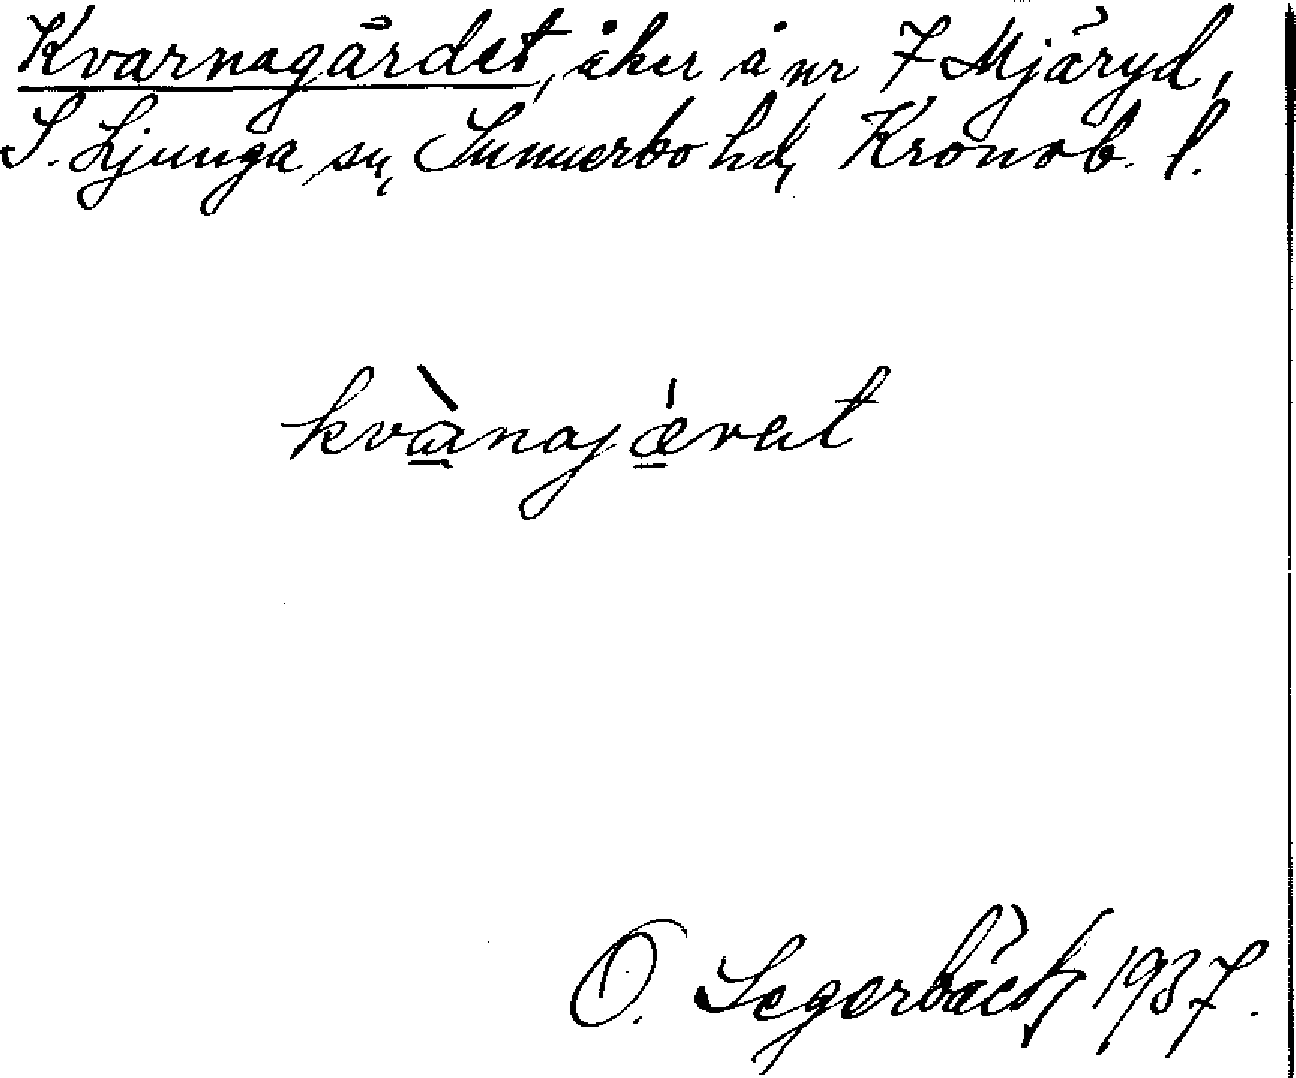 Kvarnagärdet, åker å nr 7 Mjäryd,
S. Ljunga sn, Sunnerbo hd, Kronob. l.
kvànajǽret
O. Segerbäck 1937.